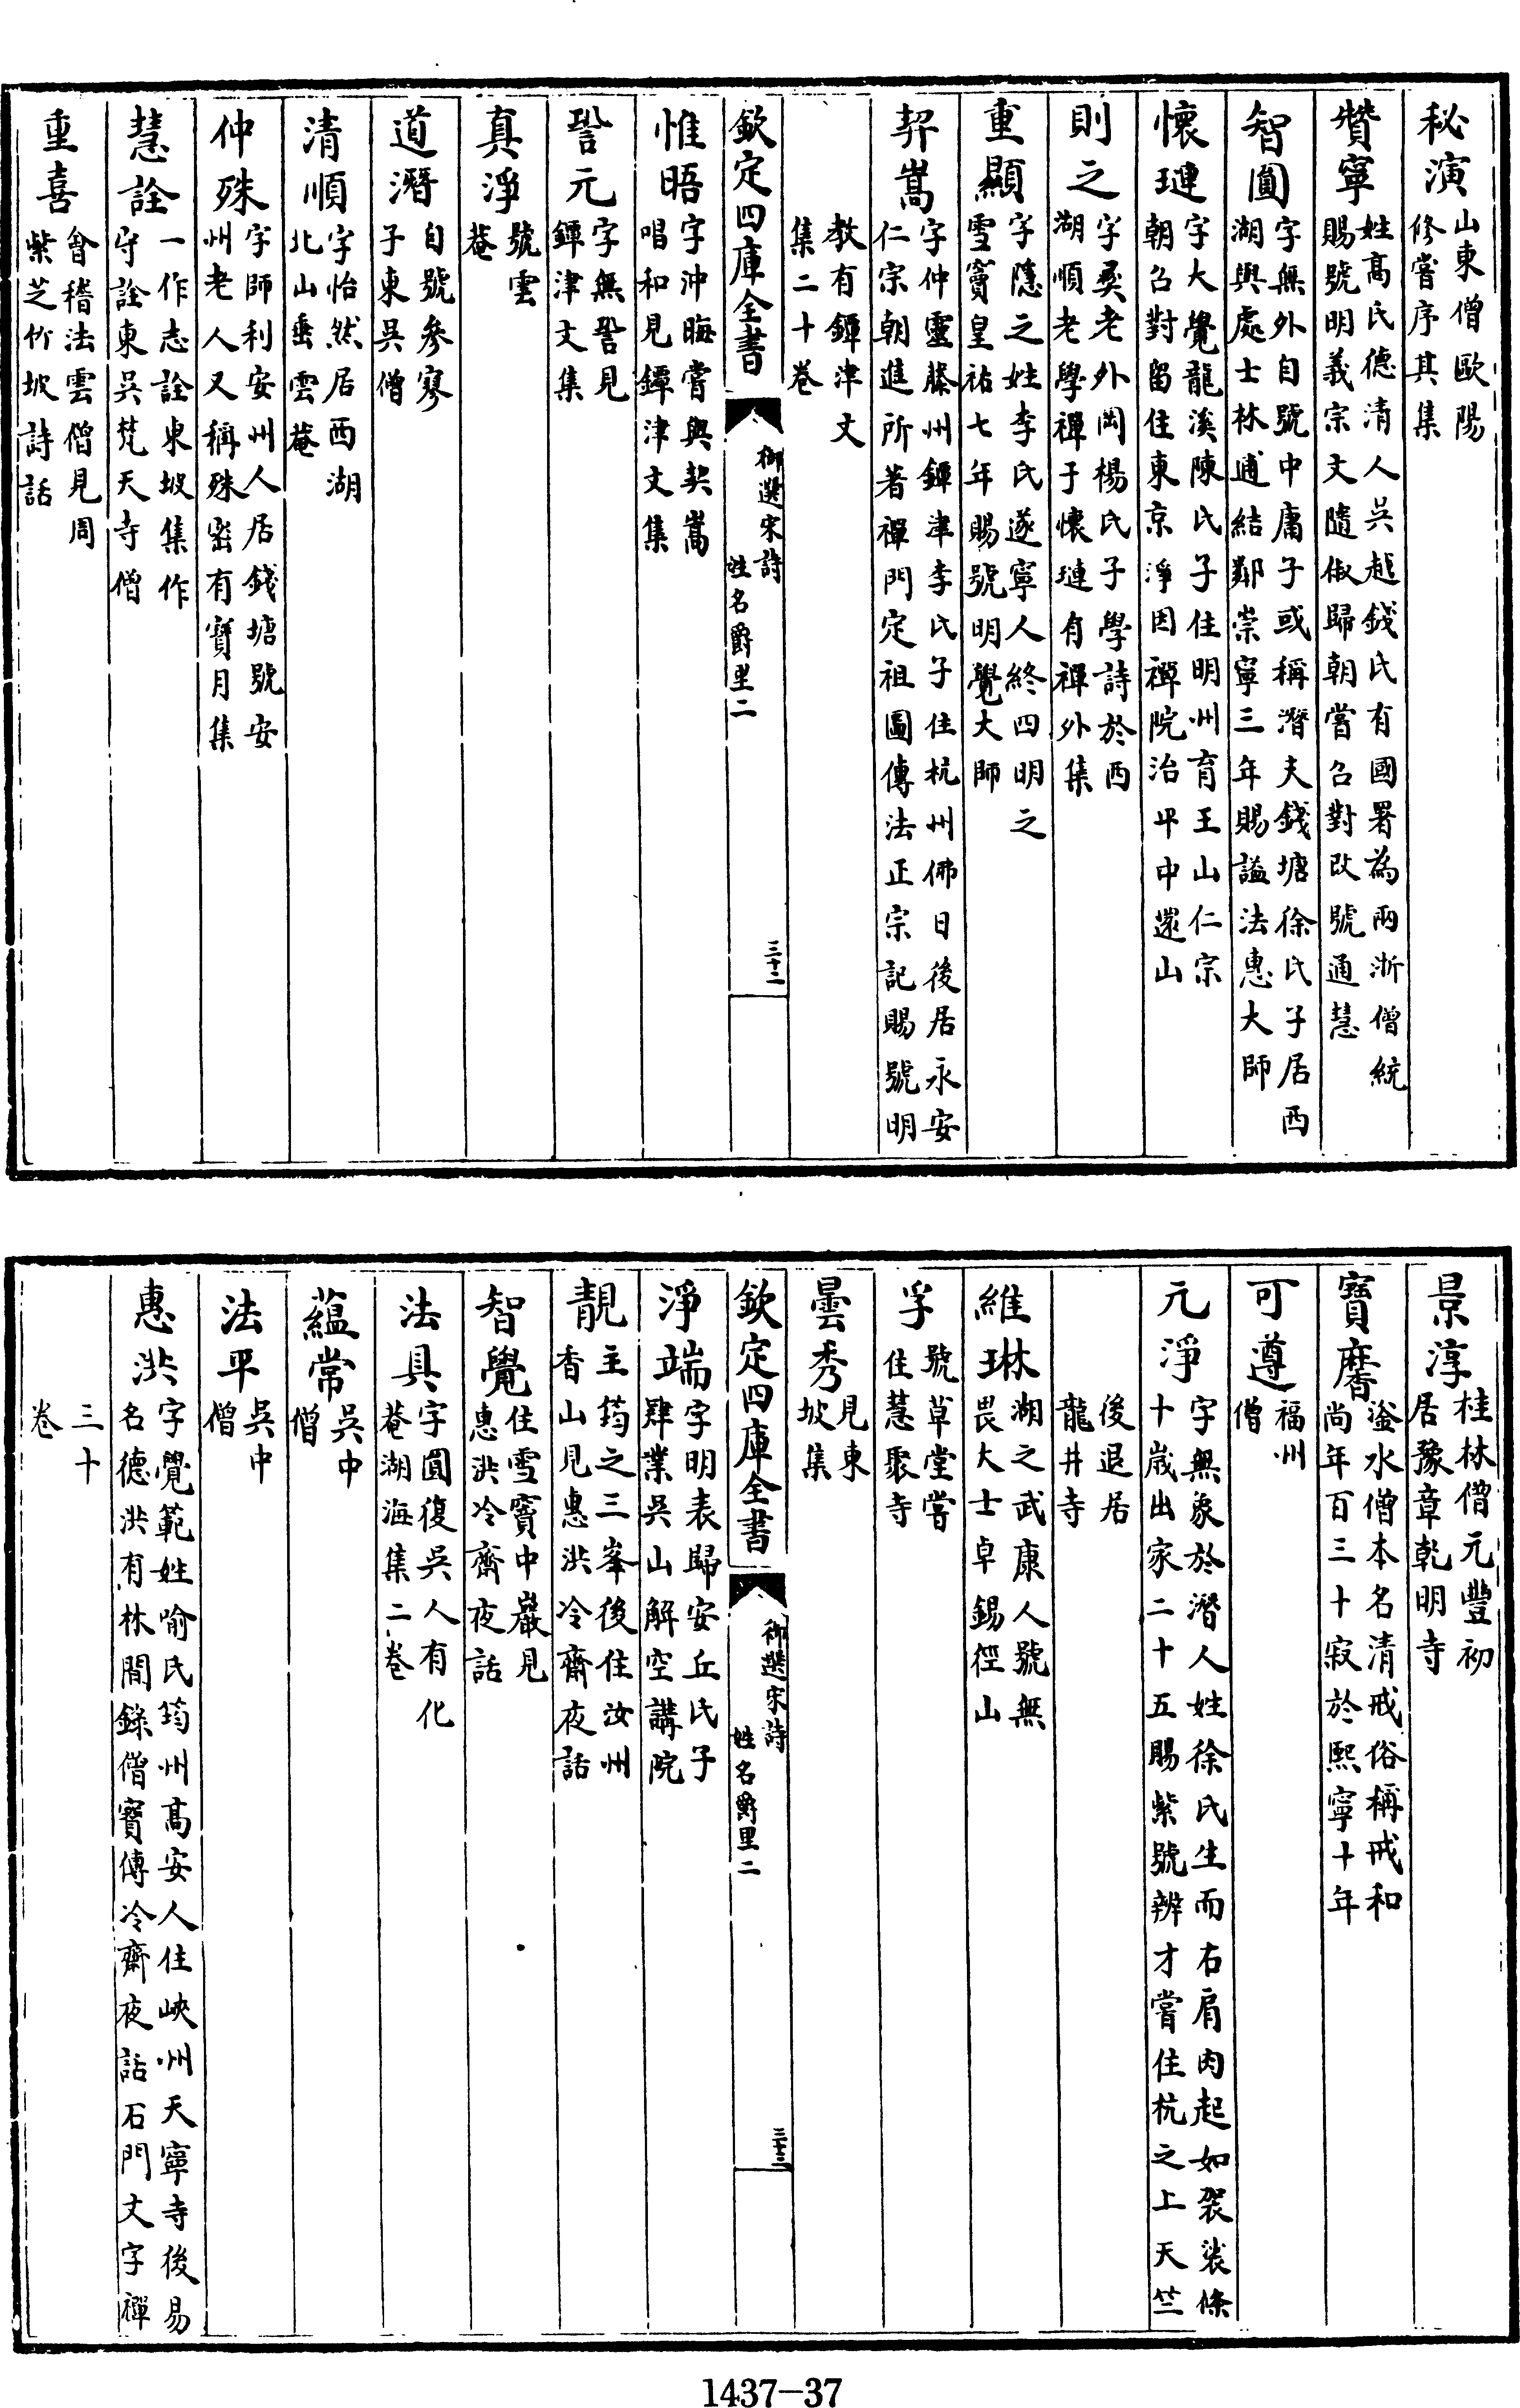 秘演山東僧歐陽
修嘗序其集
贊寧姓高氏德清人吳越錢氏有國署為兩浙僧統
賜號明義宗文隨俶歸朝嘗召對改號通慧
智圓字無外自號中庸子或稱潛夫錢塘徐氏子居西
湖與處士林逋結鄰崇寧三年賜諡法惠大師
懷璉字大覺龍溪陳氏子住明州育王山仁宗
朝召對留住東京淨因禪院治平中還山
則之字彛老外岡楊氏子學詩於西
湖順老學禪于懷璉有禪外集
重顯字隱之姓李氏遂寧人終四明之
雪竇皇祐七年賜號明覺大師
契嵩字仲靈藤州鐔津李氏子住杭州佛日後居永安
仁宗朝進所著禪門定祖圖傳法正宗記賜號明
教有鐔津文
集二十卷
欽定四庫全書
御選宋詩
姓名爵里二
三十二
惟晤字沖晦嘗與契嵩
唱和見鐔津文集
訔元字無訔見
鐔津文集
真淨號雲
菴
道潛自號參寥
子東吳僧
清順字怡然居西湖
北山垂雲菴
仲殊字師利安州人居錢塘號安
州老人又稱殊密有寶月集
慧詮一作志詮東坡集作
守詮東吳梵天寺僧
重喜會稽法雲僧見周
紫芝竹坡詩話
景淳桂林僧元豐初
居豫章乾明寺
寶麐滏水僧本名清戒俗稱戒和
尚年百三十寂於熙寧十年
可遵福州
僧
元淨字無象於潛人姓徐氏生而右肩肉起如袈裟條
十歲出家二十五賜紫號辨才嘗住杭之上天竺
後退居
龍井寺
維琳湖之武康人號無
畏大士卓錫徑山
孚號草堂嘗
住慧聚寺
曇秀見東
坡集
欽定四庫全書
御選宋詩
姓名爵里二
三十三
淨端字明表歸安丘氏子
肄業吳山解空講院
靚主筠之三峯後住汝州
香山見惠洪冷齋夜話
智覺住雪竇中巖見
惠洪冷齋夜話
法具字圓復吳人有化
菴湖海集二卷
蘊常吳中
僧
法平吳中
僧
惠洪字覺範姓喻氏筠州高安人住峽州天寧寺後易
名德洪有林間錄僧寶傳冷齋夜話石門文字禪
三十
卷
1437-37